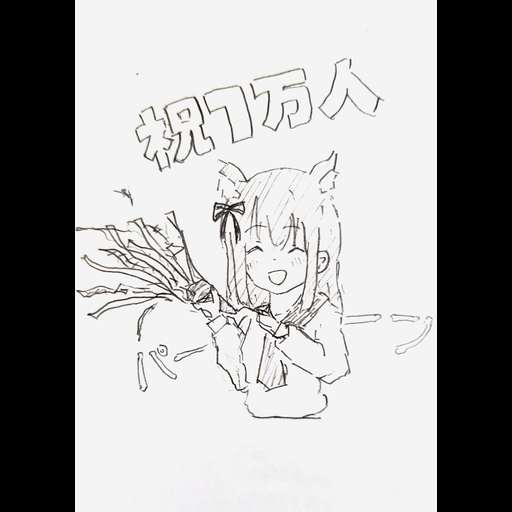 祝7万人
パーーン